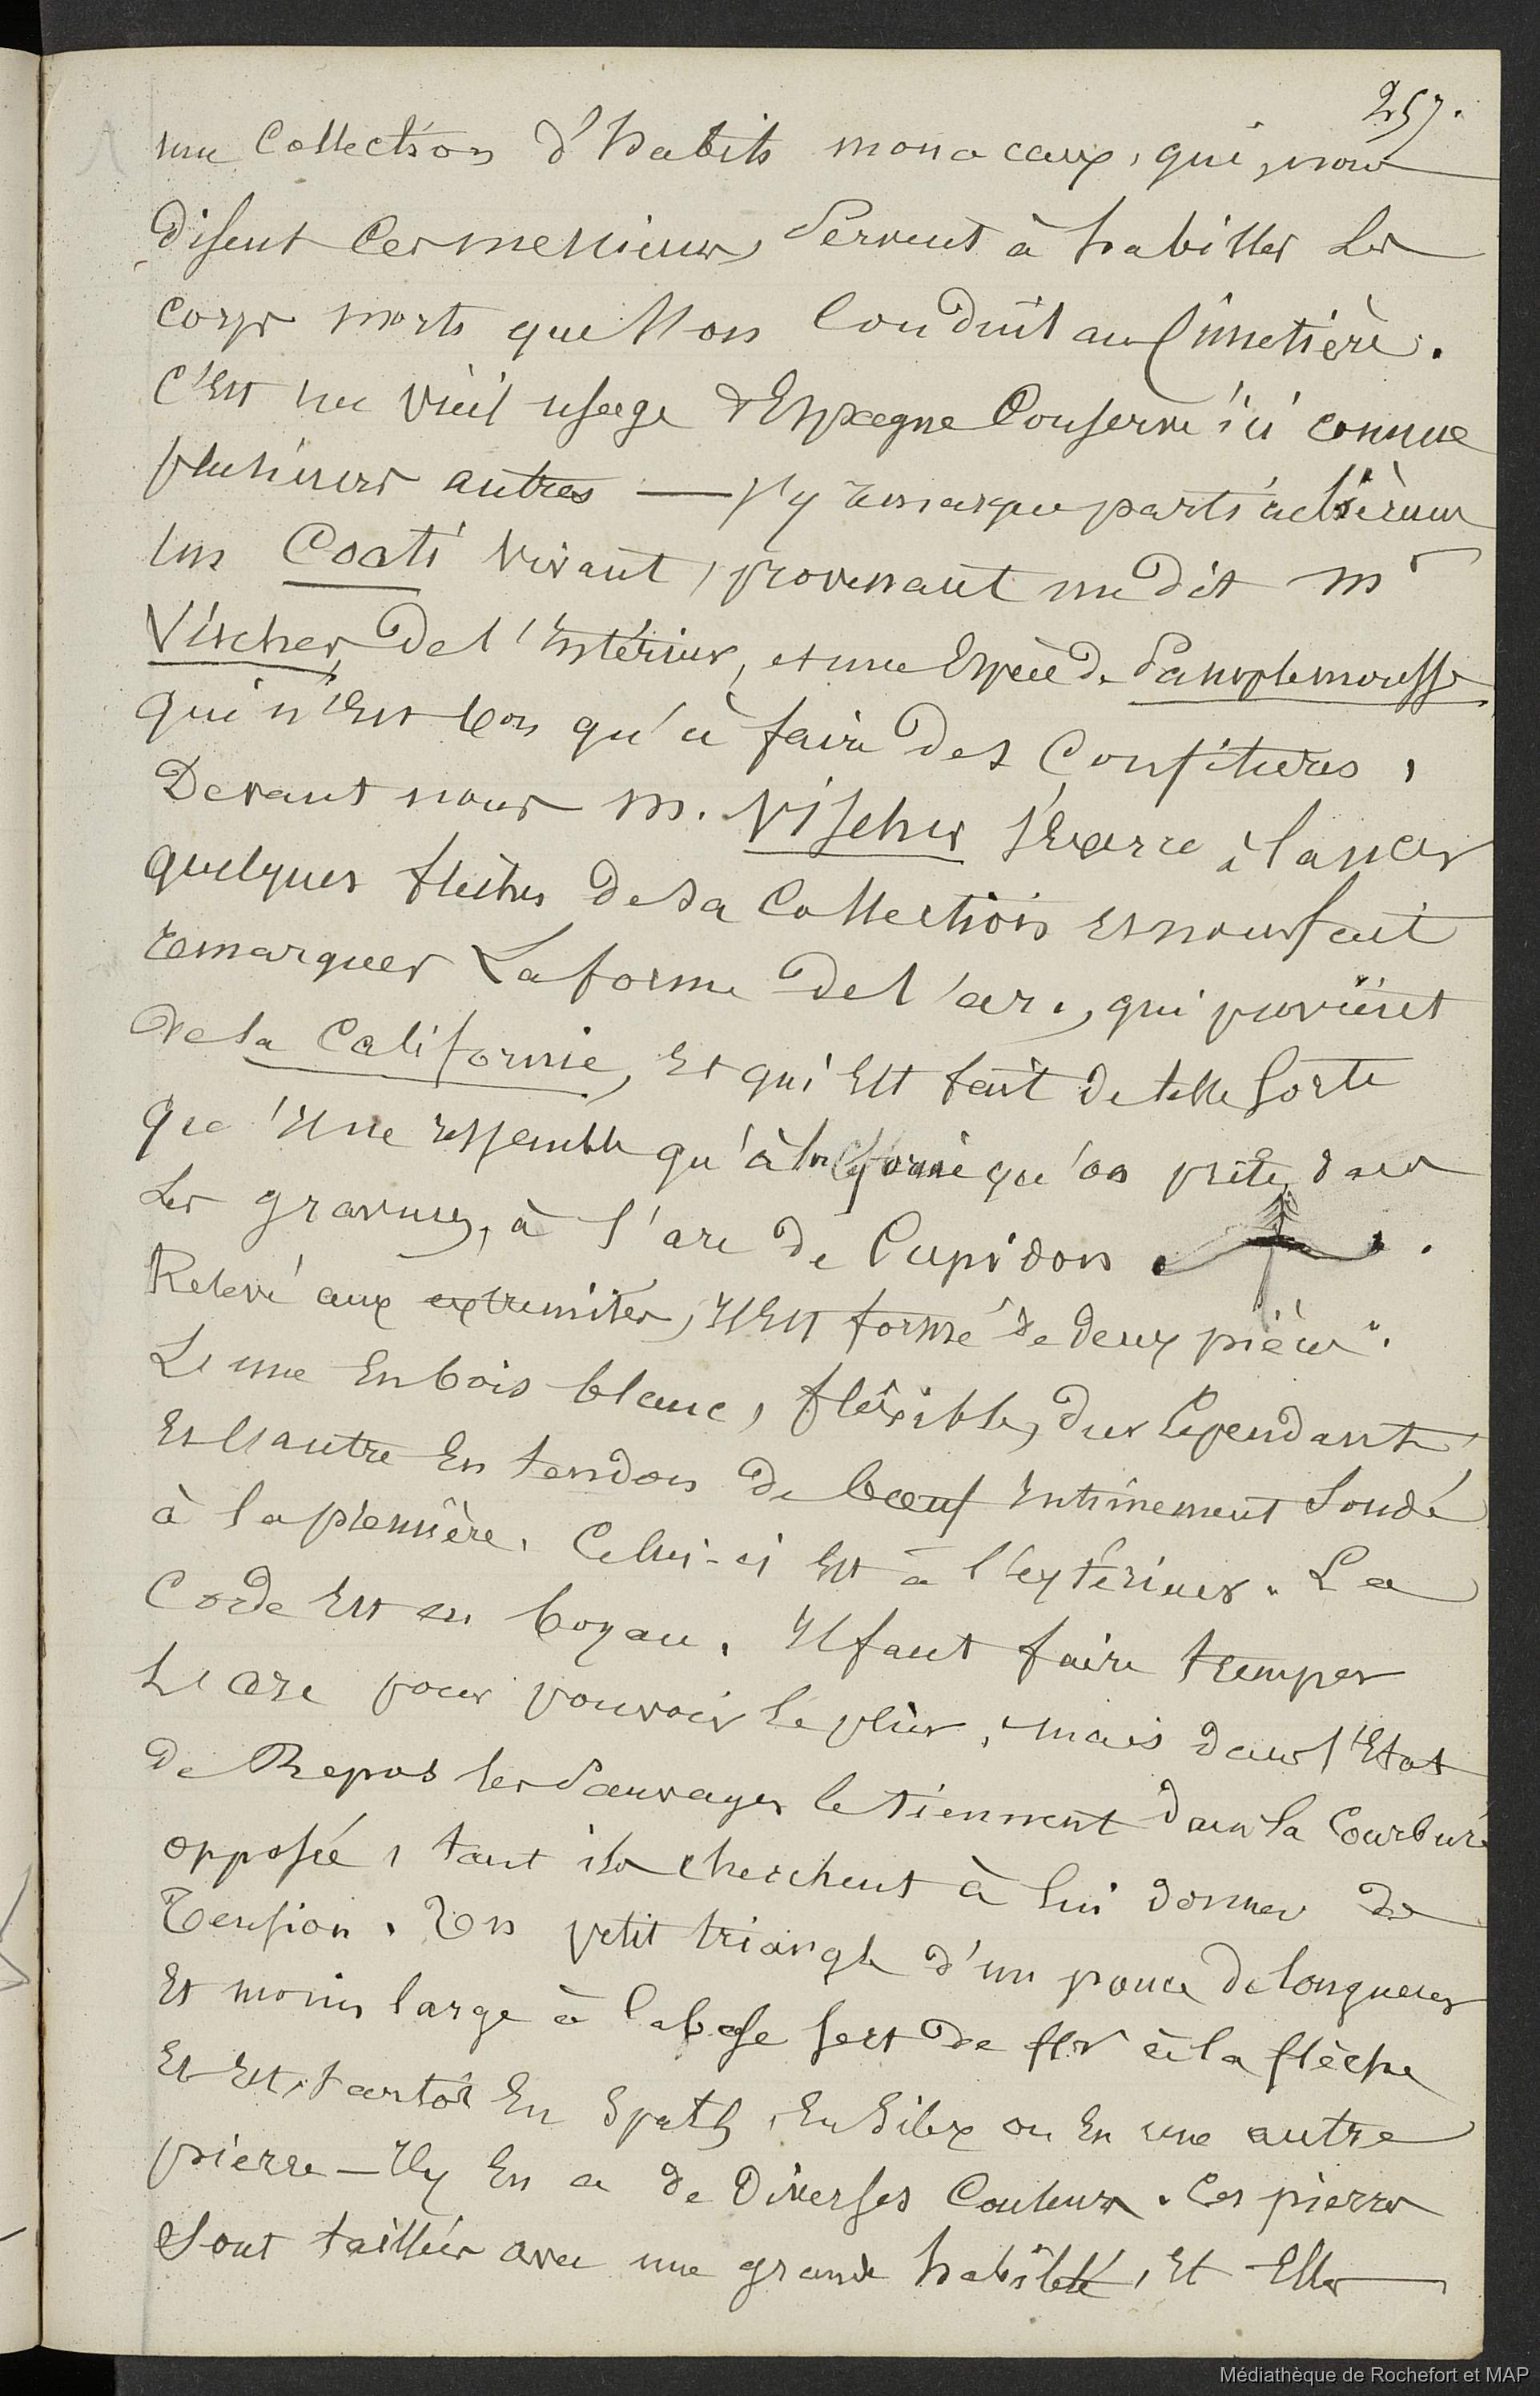 257.
une Collection d'habits monacaux, qui, nous
disent ces messieurs, Servent à habiller les
corps morts que l'on Conduit au Cimetière.
C'Est un vieil usage d'Espagne Conservé ici comme
plusieurs autres — J'y remarque particulièrem
un Coati vivant, provenant me dit mr
Vischer, de l'Intérieur, et une Espèce de Pamplemousse
qui n'Est bon qu'à faire des Confitures,
Devant nous m. Vischer s'Exerce à lancer
quelques flèches de sa Collection et nous fait
remarquer La forme de l'arc, qui provient
de la Californie, Et qui Est fait de telle Sorte
que Il ne ressemble qu'à la forme qu'on prête, dans
les gravures, à l'arc de Cupidon .
Relevé aux extremités, Il Est formé de deux pièces.
L'une En bois blanc, fléxible, dur Cependant,
Et l'autre En tendon de boeuf intimement Soudé
à la première. Celui-ci Est à l'extérieur. La
Corde Est en boyau. Il faut faire tremper
L'arc pour pouvoir le plier, mais dans l'Etat
de Repos les Sauvages le tiennent dans la Courbure
opposée, tant ils cherchent à lui donner de
Tension. Un petit triangle d'un pouce de longueur
Et moins large à la base sert de fer à la flèche
Et Est, tantôt En Spath, En Silex ou En une autre
pierre — Il y En a de Diverses Couleurs. Ces pierres
Sont taillées avec une grande habileté, Et Elles
Médiathèque de Rochefort et MAP